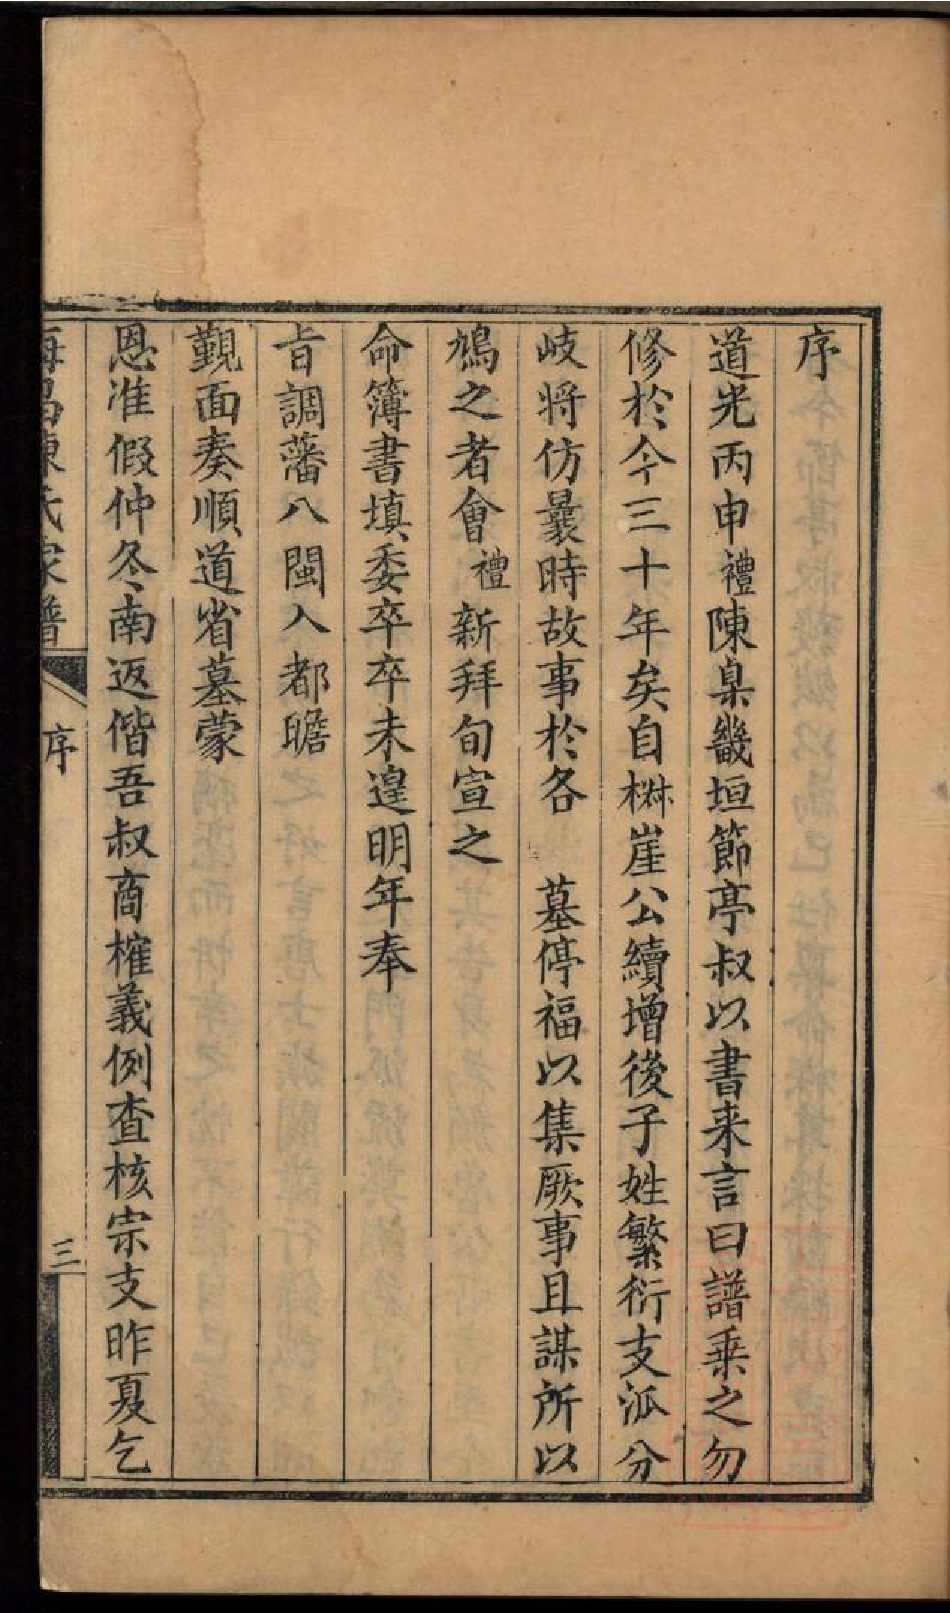 序
道光丙申禮陳臬畿垣節亭叔以書来言曰譜乗之勿
修於今三十年矣自樹崖公續增後子姓繁衍支派分
岐將仿曩時故事於各 墓停福以集厥事且謀所以
鳩之者會禮新拜旬宣之
命簿書填委卒卒未遑明年奉
旨調藩八閩入都瞻
覲面奏順道省墓蒙
恩准假仲冬南返偕吾叔商榷義例查核宗支昨夏乞
海昌陳氏家譜 序 三